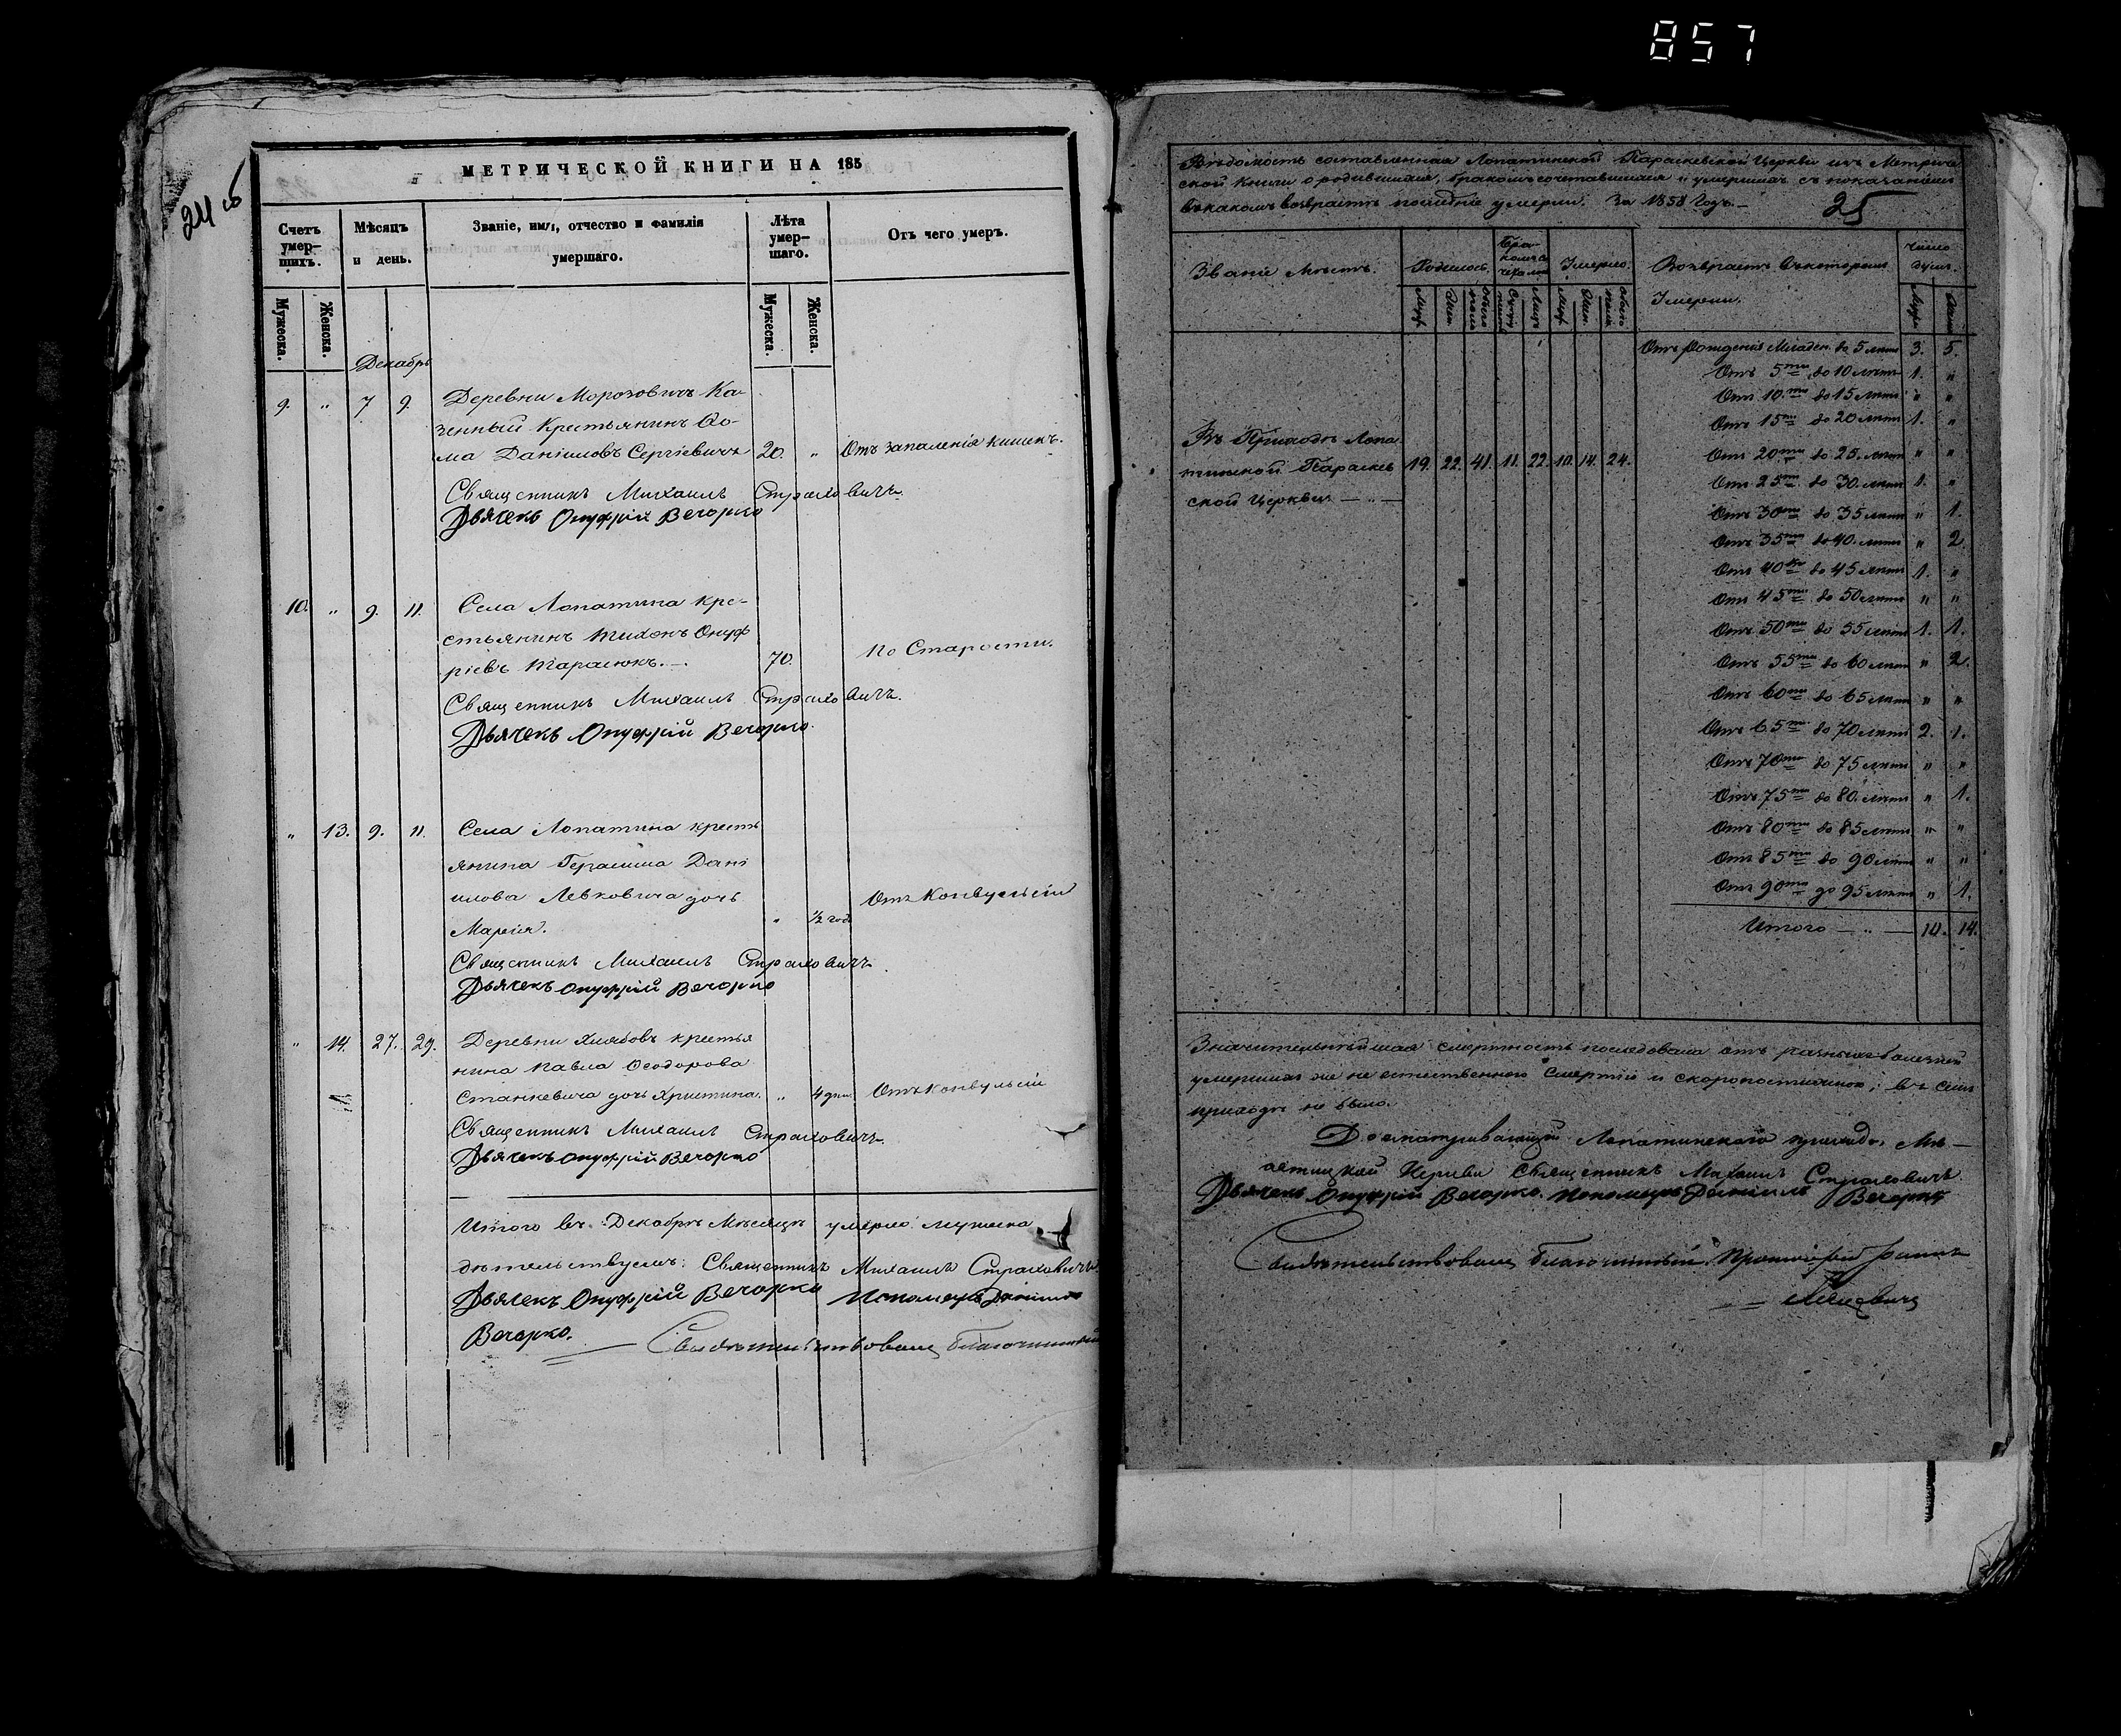 857
24 об
МЕТРИЧЕСКОЙ КНИГИ НА 185
Счетъ умер- шихъ.
Мѣсяцъ и день.
Званіе, имя, отчество и фамилія умершаго.
Лѣта умер- шаго.
Отъ чего умеръ.
Мужеска. Женска. Мужеска. Женска.
Декабрь
9. " 7 9. Деревни Морозовичъ Ка-
зенный Крестьянинъ Ѳо-
ма Даніиловъ Сергіевичъ 20. " Отъ запаленія кишекъ.
Священникъ Михаилъ Страховичъ
Дьячекъ Онуфрій Вечорко
10. " 9. 11. Села Лопатина кре-
стьянинъ Тихонъ Онуф
ріевъ Тарасюкъ. 70. По Старости.
Священникъ Михаилъ Страховичъ.
Дьячекъ Онуфрій Вечорко.
" 13. 9. 11. Села Лопатина кресть
янина Герасима Дані
илова Левковича дочь
Марія. " 1/2 год Отъ Конвульсіи
Священникъ Михаилъ Страховичъ.
Дьячекъ Онуфрій Вечорко
" 14. 27. 29. Деревни Хлябовъ крестья
нина Павла Ѳеодорова
Станкевича дочь Христина. " 4 дни. Отъ конвульсіи
Священникъ Михаилъ Страховичъ
Дьячекъ Онуфрій Вечорко
Итого въ Декабрѣ Мѣсяцѣ умерло мужеска
дѣтельствуемъ: Священникъ Михаилъ Страховичъ
Дьячекъ Онуфрій Вечорко Пономарь Даніилъ
Вечорко. Свидѣтельствовалъ Благочинный
Вѣдомость составленная Лопатинской Параскевской Церкви изъ Метриче
ской Книги о родившихся, бракомъ сочетавшихся и умершихъ съ показаніемъ
въ какомъ возрастѣ послѣдніе умерли. За 1858 Годъ.
25
Званіе Мѣстъ. Родилось. Умерло. Возрастъ въ которомъ Умерли. Число душъ.
Отъ рожденія Младен. до 5 лѣтъ 3. 5.
Отъ 5ти до 10 лѣтъ 1. "
Отъ 10ти до 15 лѣтъ " "
Отъ 15ти до 20 лѣтъ 1. "
Въ Приходѣ Лопа
тинской Параскев
ской Церкви 19. 22. 41. 11. 22. 10. 14. 24.
Отъ 20ти до 25. лѣтъ " "
Отъ 25ти до 30. лѣтъ 1. "
Отъ 30ти до 35 лѣтъ " 1.
Отъ 35ти до 40. лѣтъ " 2
Отъ 40ка до 45 лѣтъ 1. "
Отъ 45ти до 50 лѣтъ " "
Отъ 50ти до 55 лѣтъ 1. 1.
Отъ 55ти до 60 лѣтъ " 2.
Отъ 60ти до 65 лѣтъ " "
Отъ 65ти до 70 лѣтъ 2. 1.
Отъ 70ти до 75 лѣтъ " "
Отъ 75ти до 80. лѣтъ " 1.
Отъ 80ти до 85 лѣтъ " "
Отъ 85ти до 90 лѣтъ " "
Отъ 90та до 95 лѣтъ " 1.
Итого — " — 10. 14.
Значительнѣйшая смертность послѣдовала отъ разныхъ болезней
умершихъ же не естественною Смертію и скоропостижною; въ семъ
приходѣ не было.
Досматривавшій Лопатинскаго прихода,
Церкви Священникъ Михаилъ Страховичъ.
Дьячекъ Онуфрій Вечорко. Пономарь Даніилъ Вечорко
Свидѣтельствовалъ Благочинный Протоіерей